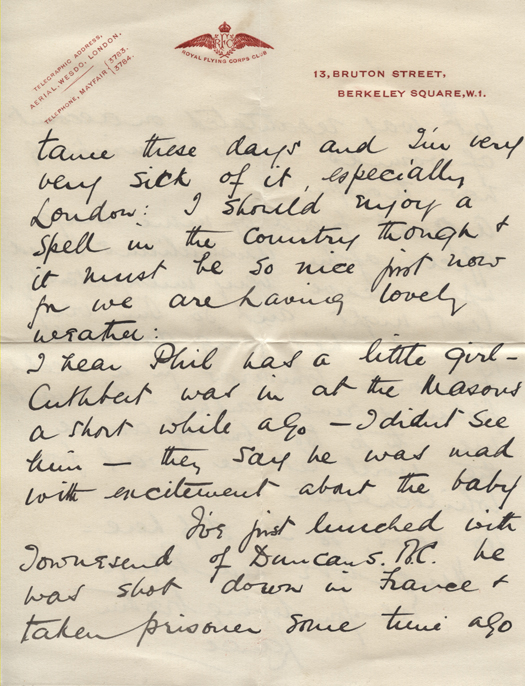 TELEGRAPHIC ADDRESS,
AERIAL, WESDO, LONDON.
TELEPHONE, MAYFAIR { 3763.
3764.
RFC
ROYAL FLYING CORPS CLUB
13, BRUTON STREET,
BERKELEY SQUARE, W.1.
tame these days and I'm very
very sick of it, especially
London: I should enjoy a
spell in the country though &
it must be so nice just now
for we are having lovely
weather:
I hear Phil has a little girl –
Cuthbert was in at the Masons
a short while ago – I didn't see
him – they say he was mad
with excitement about the baby
I've just lunched with
Townesend of Duncans. B.C. he
was shot down in France &
taken prisoner some time ago